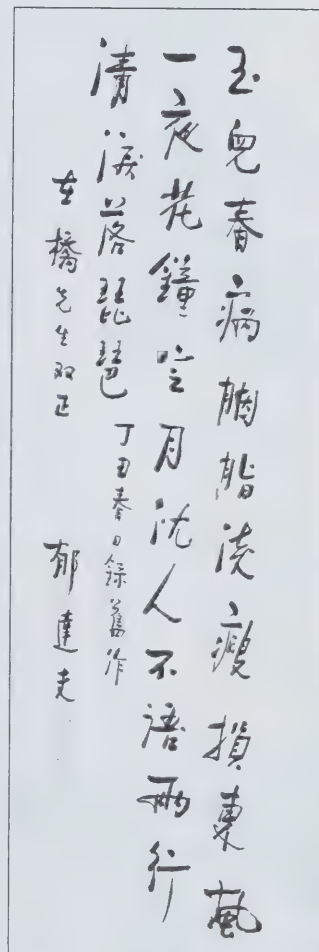 玉兒春病胭脂淡瘦損東風
一夜花鐘定月沈人不語兩行
清淚落琵琶
丁丑春日錄舊作
左橋先生双正
郁達夫